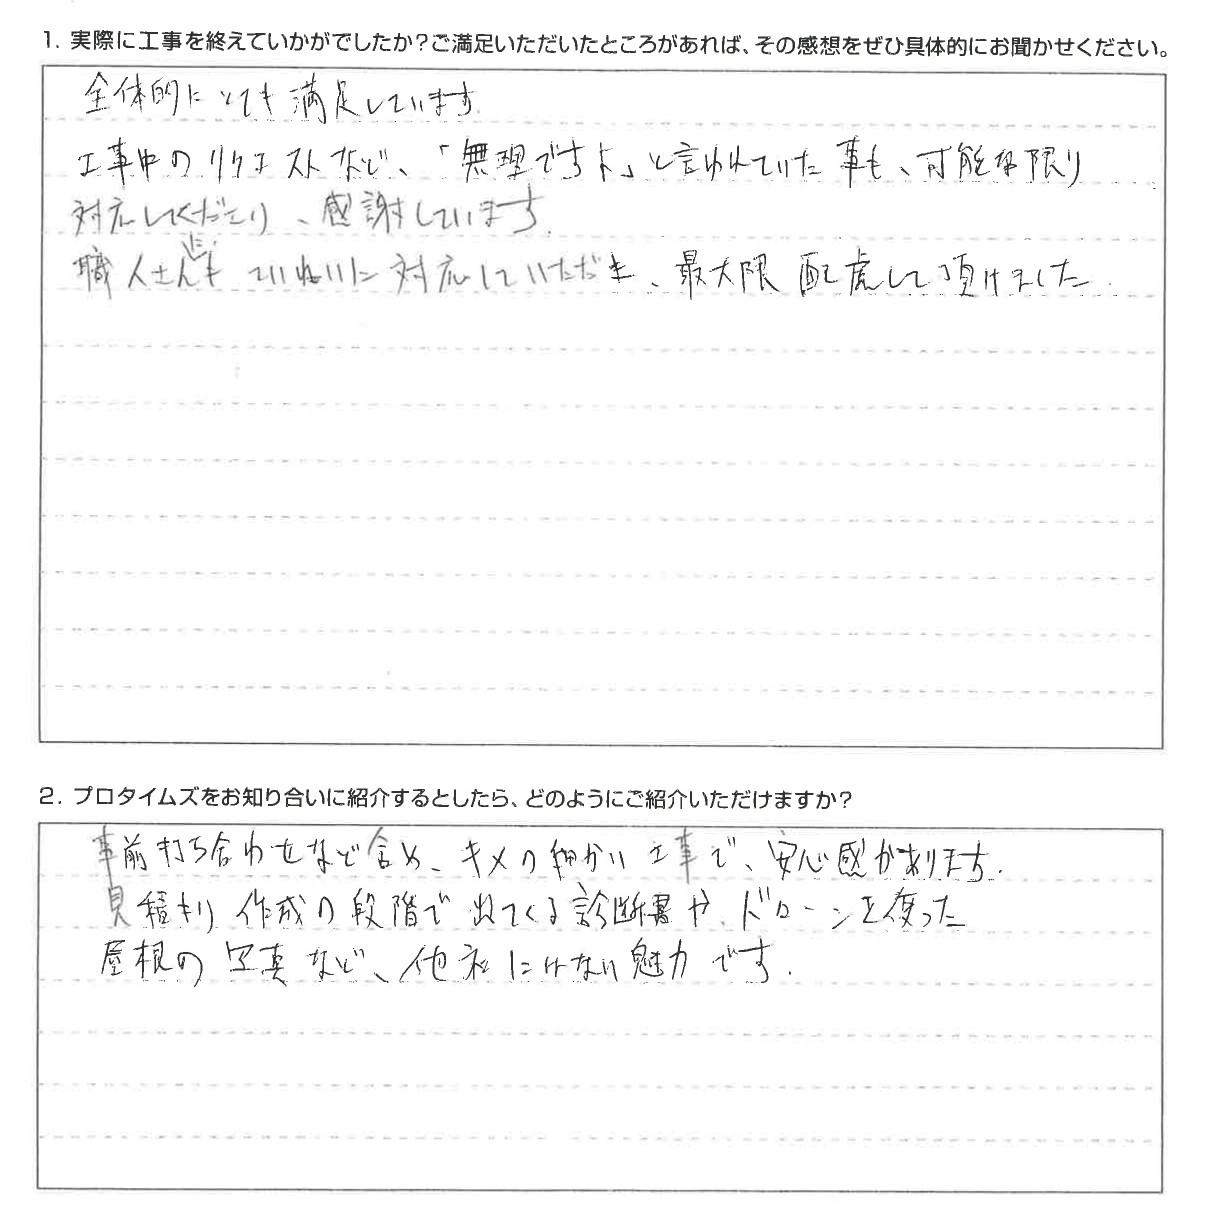 1. 実際に工事を終えていかがでしたか?ご満足いただいたところがあれば、その感想をぜひ具体的にお聞かせください。
全体的にとても満足しています
工事中のリクエストなど、「無理ですよ」と言われていた事も、可能な限り
対応してくださり、感謝しています。
職人さんたちにもていねいに対応していただき、最大限配慮して頂けました.
2. プロタイムズをお知り合いに紹介するとしたら、どのようにご紹介いただけますか?
事前打ち合わせなど含め、キメの細かい工事で、安心感があります.
見積もり作成の段階で出てくる診断書や、ドローンを使った
屋根の写真など、他社にはない魅力です.